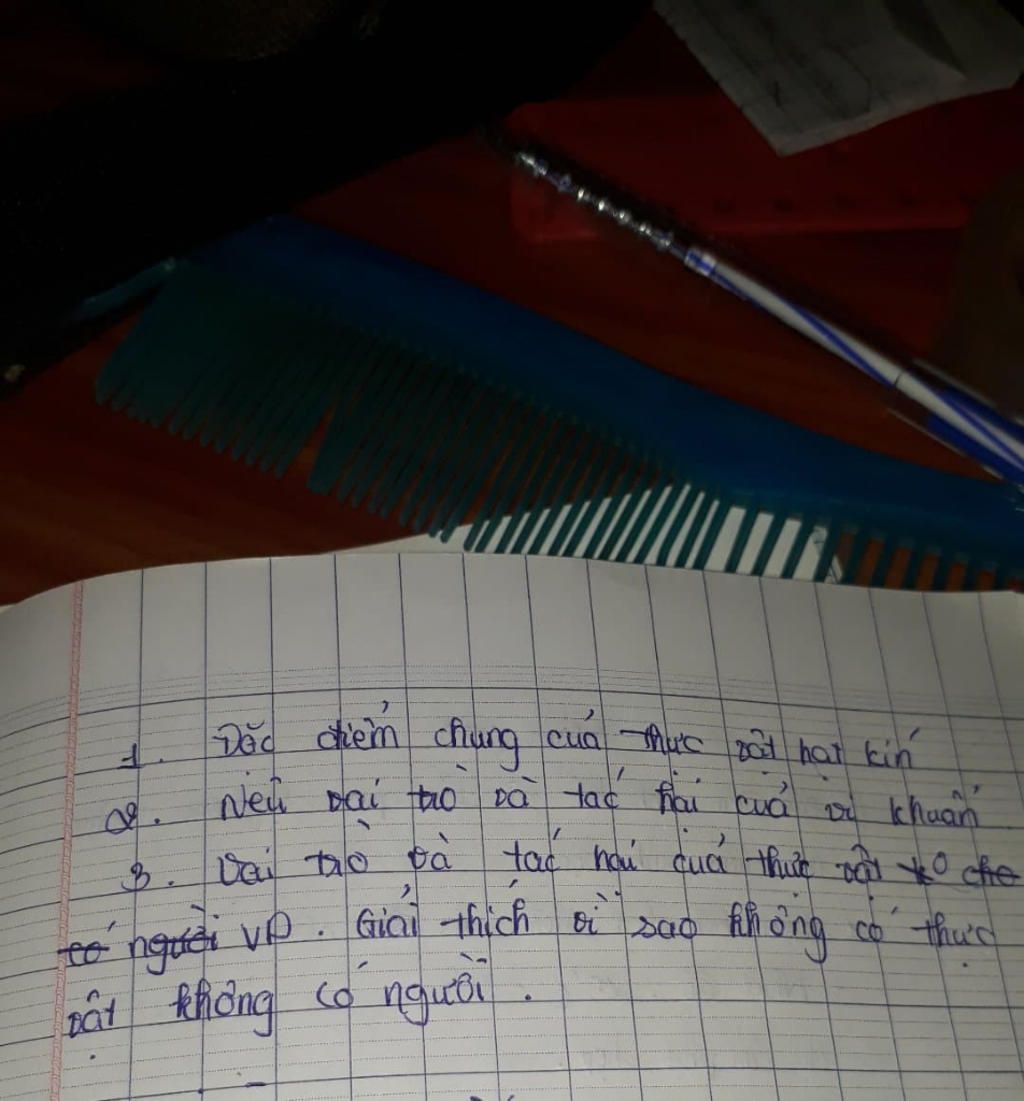 1. Đặc điểm chung của thực vật hạt kín
2. Nêu vai trò và tác hại của vi khuẩn
3. Vai trò và tác hại của thực vật
người VD. Giải thích vì sao không có thực
vật không có người.